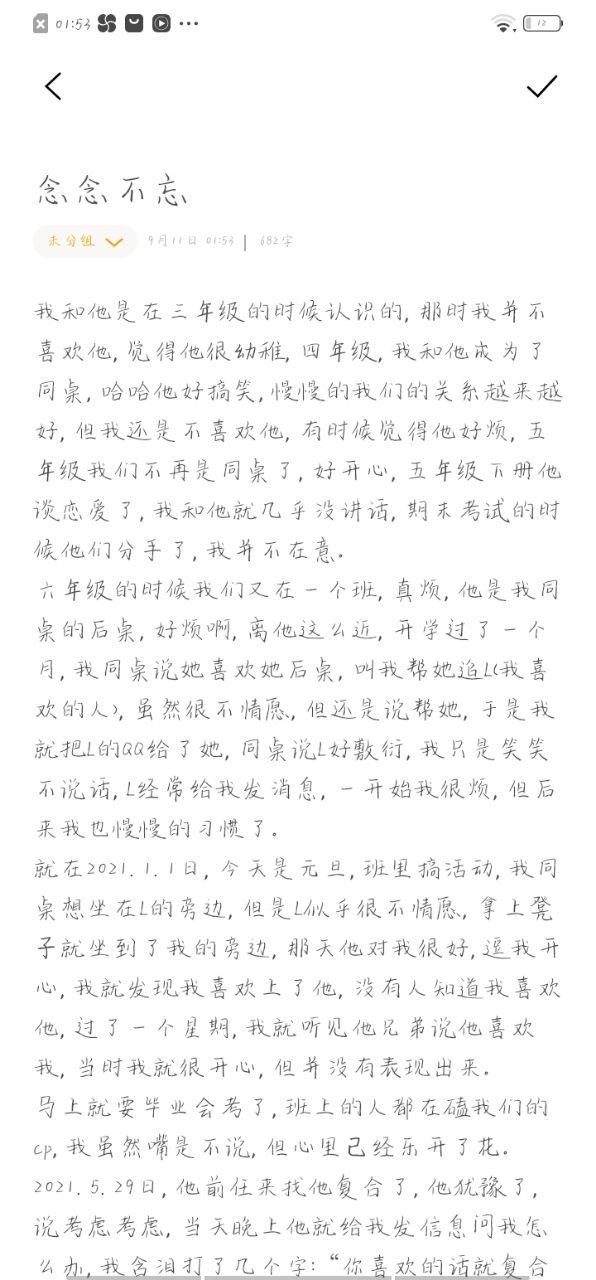 01:53
12
念念不忘
未分组 9月11日 01:53 | 682字
我和他是在三年级的时候认识的,那时我并不
喜欢他,觉得他很幼稚,四年级,我和他成为了
同桌,哈哈他好搞笑,慢慢的我们的关系越来越
好,但我还是不喜欢他,有时候觉得他好烦,五
年级我们不再是同桌了,好开心,五年级下册他
谈恋爱了,我和他就几乎没讲话,期末考试的时
候他们分手了,我并不在意。
六年级的时候我们又在一个班,真烦,他是我同
桌的后桌,好烦啊,离他这么近,开学过了一个
月,我同桌说她喜欢她后桌,叫我帮她追L(我喜
欢的人),虽然很不情愿,但还是说帮她,于是我
就把L的QQ给了她,同桌说L好敷衍,我只是笑笑
不说话,L经常给我发消息,一开始我很烦,但后
来我也慢慢的习惯了。
就在2021.1.1日,今天是元旦,班里搞活动,我同
桌想坐在L的旁边,但是L似乎很不情愿,拿上凳
子就坐到了我的旁边,那天他对我很好,逗我开
心,我就发现我喜欢上了他,没有人知道我喜欢
他,过了一个星期,我就听见他兄弟说他喜欢
我,当时我就很开心,但并没有表现出来。
马上就要毕业会考了,班上的人都在磕我们的
cp,我虽然嘴是不说,但心里己经乐开了花。
2021.5.29日,他前任来找他复合了,他犹豫了,
说考虑考虑,当天晚上他就给我发信息问我怎
么办,我含泪打了几个字:“你喜欢的话就复合